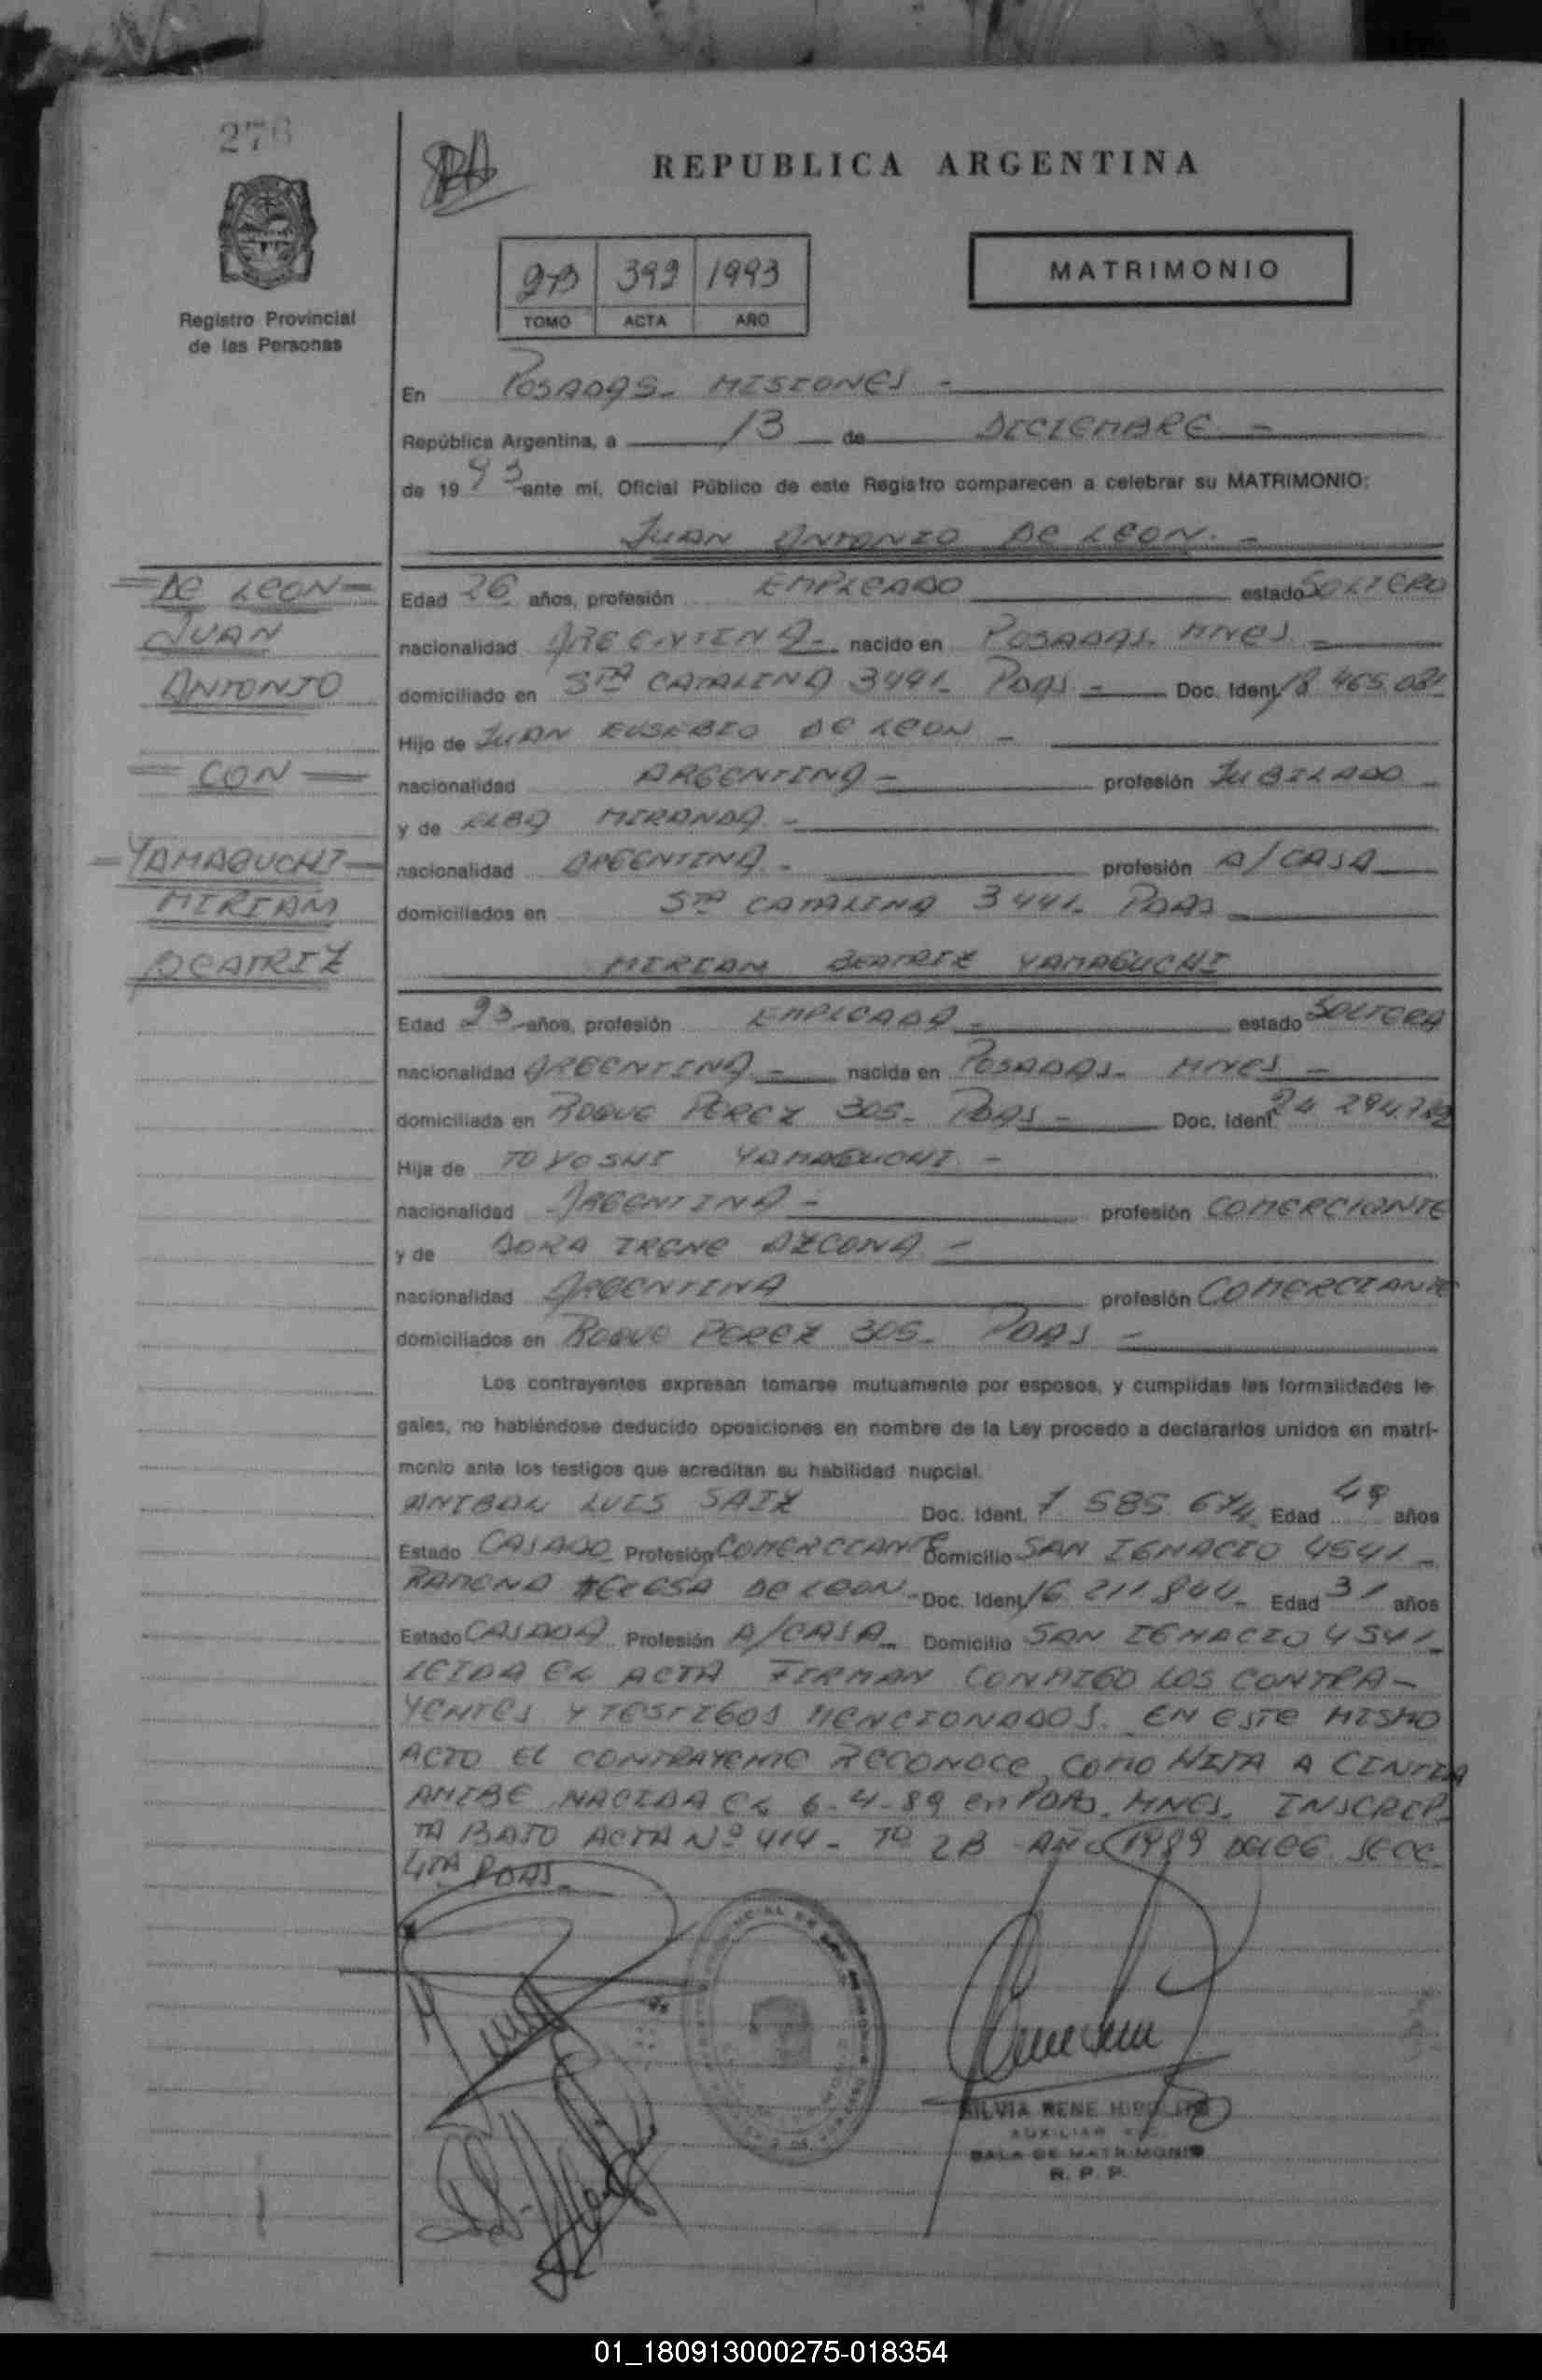 276
REPUBLICA ARGENTINA
Registro Provincial
de las Personas
392 1993
TOMO ACTA AÑO
MATRIMONIO
En POSADAS- MISIONES -
República Argentina, a 13 de DICIEMBRE -
de 19 93 ante mí, Oficial Público de este Registro comparecen a celebrar su MATRIMONIO:
JUAN ANTONIO DE LEON. -
=DE LEON=
JUAN
ANTONIO
= CON =
-YAMAGUCHI-
MIRIAM
BEATRIZ
Edad 26 años, profesión EMPLEADO estado SOLTERO
nacionalidad ARGENTINA- nacido en POSADAS. MNES -
domiciliado en STA CATALINA 3441- PDAS - Doc. Ident. 18.465.081
Hijo de JUAN EUSEBIO DE LEON -
nacionalidad ARGENTINA - profesión JUBILADO -
y de ELBA MIRANDA. -
nacionalidad ARGENTINA. - profesión A/CASA
domiciliados en STA CATALINA 3441- PDAS -
MIRIAM BEATRIZ YAMAGUCHI
Edad 23 años, profesión EMPLEADA - estado SOLTERA
nacionalidad ARGENTINA - nacida en POSADAS- MNES -
domiciliada en ROQUE PEREZ 305- PDAS - Doc. Ident. 24.294.789
Hija de TOYOSHI YAMAGUCHI -
nacionalidad ARGENTINA - profesión COMERCIANTE
y de DORA IRENE AZCONA -
nacionalidad ARGENTINA profesión COMERCIANTE
domiciliados en ROQUE PEREZ 305- PDAS -
Los contrayentes expresan tomarse mutuamente por esposos, y cumplidas las formalidades le-
gales, no habiéndose deducido oposiciones en nombre de la Ley procedo a declararlos unidos en matri-
monio ante los testigos que acreditan su habilidad nupcial.
ANIBAL LUIS SAIZ Doc. Ident. 7.585.674 Edad 49 años
Estado CASADO Profesión COMERCIANTE Domicilio SAN IGNACIO 4541-
RAMONA TERESA DE LEON- Doc. Ident. 16.211.844- Edad 31 años
Estado CASADA Profesión A/CASA- Domicilio SAN IGNACIO 4541-
LEIDA EL ACTA FIRMAN CONMIGO LOS CONTRA-
YENTES Y TESTIGOS MENCIONADOS. EN ESTE MISMO
ACTO EL CONTRAYENTE RECONOCE COMO HIJA A CINTIA
ANIBE NACIDA EL 6-4-89 en PDAS. MNES. INSCRIP-
TA BAJO ACTA Nº 414- Tº 2B AÑO 1989 DELEG. SECC.
4TA PDAS-
SILVIA RENE
AUXILIAR
SALA DE MATRIMONIO
R. P. P.
01_180913000275-018354